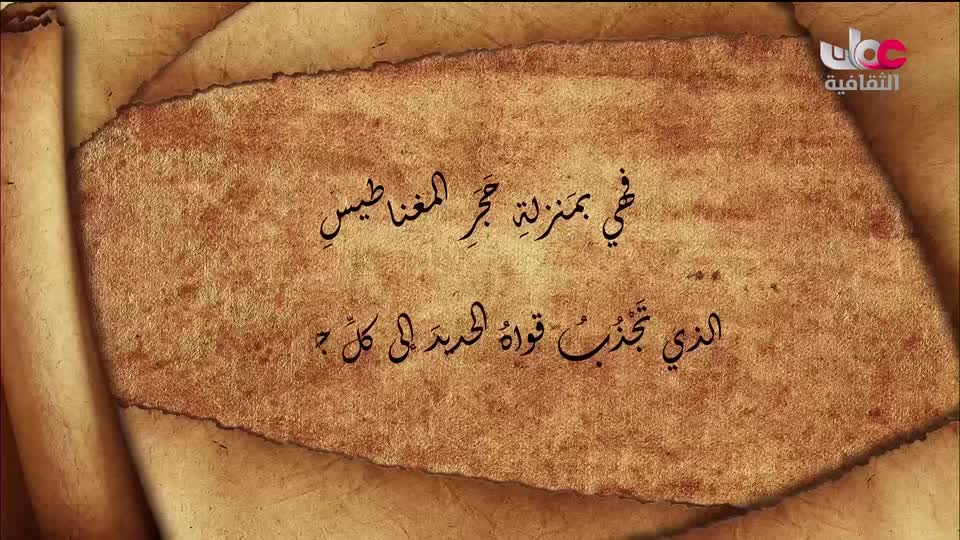 عمان
الثقافية
فهي بمَنزلةِ حَجَرِ المغناطيسِ
الذي تَجْذُبُ قواهُ الحديدَ إلى كلِّ جـ